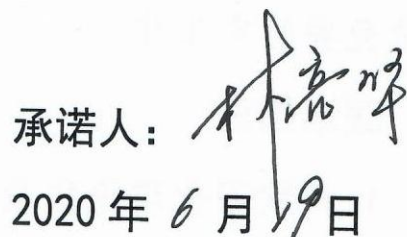 承诺人：林亮
2020 年 6 月 19 日